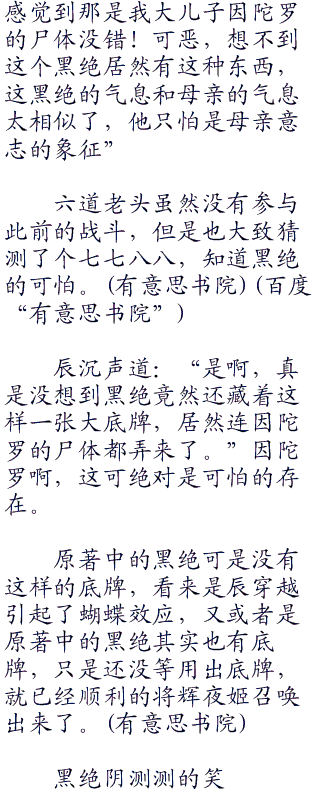 感觉到那是我大儿子因陀罗
的尸体没错！可恶，想不到
这个黑绝居然有这种东西，
这黑绝的气息和母亲的气息
太相似了，他只怕是母亲意
志的象征”
六道老头虽然没有参与
此前的战斗，但是也大致猜
测了个七七八八，知道黑绝
的可怕。(有意思书院)(百度
“有意思书院”)
辰沉声道：“是啊，真
是没想到黑绝竟然还藏着这
样一张大底牌，居然连因陀
罗的尸体都弄来了。”因陀
罗啊，这可绝对是可怕的存
在。
原著中的黑绝可是没有
这样的底牌，看来是辰穿越
引起了蝴蝶效应，又或者是
原著中的黑绝其实也有底
牌，只是还没等用出底牌，
就已经顺利的将辉夜姬召唤
出来了。(有意思书院)
黑绝阴测测的笑